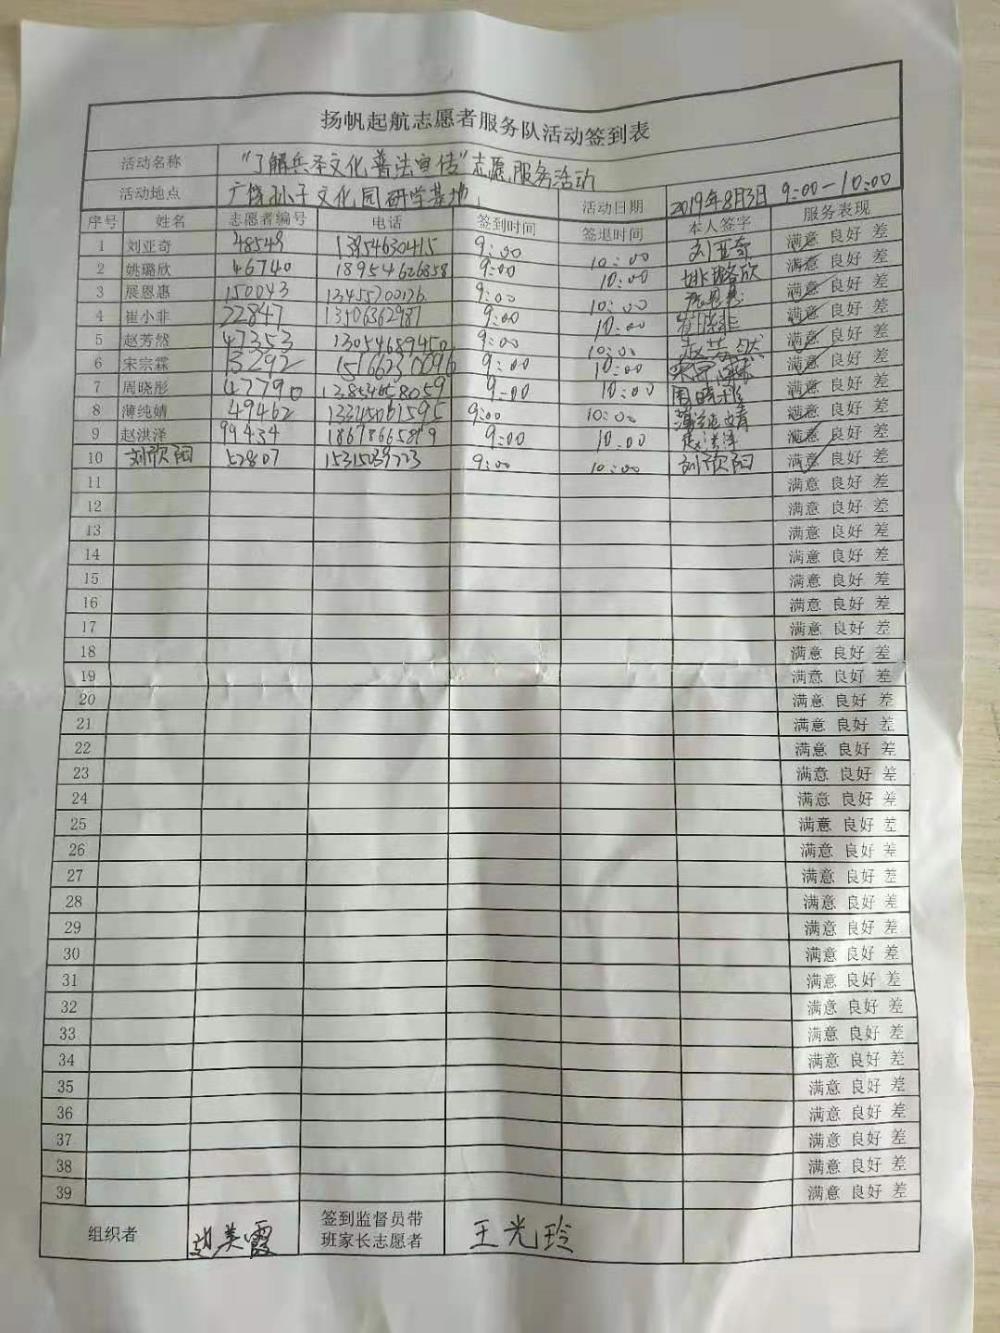 扬帆起航志愿者服务队活动签到表
活动名称 "了解兵圣文化 普法宣传"志愿服务活动
活动地点 广饶孙子文化园研学基地 活动日期 2019年8月3日 9:00-10:00
序号 姓名 志愿者编号 电话 签到时间 签退时间 本人签字 服务表现
1 刘亚奇 48549 13954630415 9:00 10:00 刘亚奇 满意 良好 差
2 姚璐欣 46740 18954626858 9:00 10:00 姚璐欣 满意 良好 差
3 展恩惠 150043 13455700126 9:00 10:00 展恩惠 满意 良好 差
4 崔小非 22847 13506362987 9:00 10:00 崔小非 满意 良好 差
5 赵芳然 47353 13054689450 9:00 10:00 赵芳然 满意 良好 差
6 宋宗霖 13292 15166230096 9:00 10:00 宋宗霖 满意 良好 差
7 周晓彤 47790 9:00 10:00 周晓彤 满意 良好 差
8 薄纯婧 49462 9:00 10:00 薄纯婧 满意 良好 差
9 赵洪泽 99434 18678665819 9:00 10:00 赵洪泽 满意 良好 差
10 刘欣阳 52807 15315039223 9:00 10:00 刘欣阳 满意 良好 差
11 满意 良好 差
12 满意 良好 差
13 满意 良好 差
14 满意 良好 差
15 满意 良好 差
16 满意 良好 差
17 满意 良好 差
18 满意 良好 差
19 满意 良好 差
20 满意 良好 差
21 满意 良好 差
22 满意 良好 差
23 满意 良好 差
24 满意 良好 差
25 满意 良好 差
26 满意 良好 差
27 满意 良好 差
28 满意 良好 差
29 满意 良好 差
30 满意 良好 差
31 满意 良好 差
32 满意 良好 差
33 满意 良好 差
34 满意 良好 差
35 满意 良好 差
36 满意 良好 差
37 满意 良好 差
38 满意 良好 差
39 满意 良好 差
组织者 赵美霞 签到监督员带
班家长志愿者 王光玲